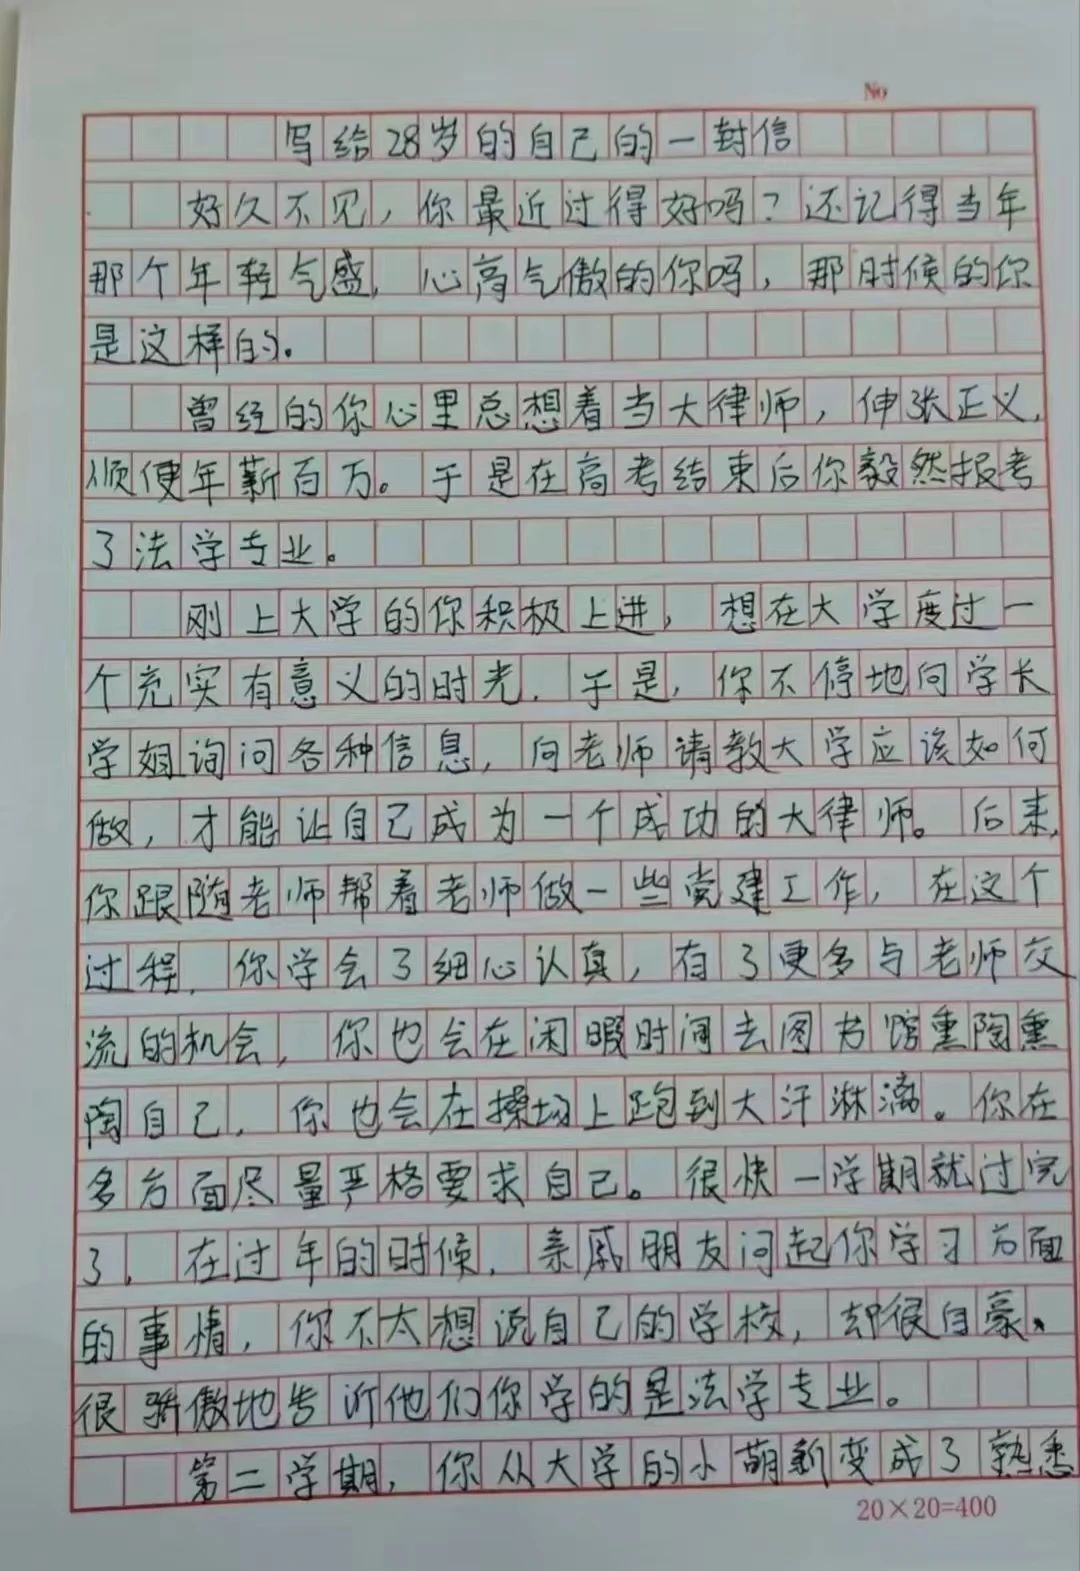 No
写给28岁的自己的一封信
好久不见，你最近过得好吗？还记得当年
那个年轻气盛，心高气傲的你吗，那时候的你
是这样的。
曾经的你心里总想着当大律师，伸张正义，
顺便年薪百万。于是在高考结束后你毅然报考
了法学专业。
刚上大学的你积极上进，想在大学度过一
个充实有意义的时光．于是，你不停地向学长
学姐询问各种信息，向老师请教大学应该如何
做，才能让自己成为一个成功的大律师。后来，
你跟随老师帮着老师做一些党建工作，在这个
过程，你学会了细心认真，有了更多与老师交
流的机会，你也会在闲暇时间去图书馆熏陶熏
陶自己，你也会在操场上跑到大汗淋漓。你在
多方面尽量严格要求自己。很快一学期就过完
了，在过年的时候，亲戚朋友问起你学习方面
的事情，你不太想说自己的学校，却很自豪、
很骄傲地告诉他们你学的是法学专业。
第二学期，你从大学的小萌新变成了熟悉
20×20=400